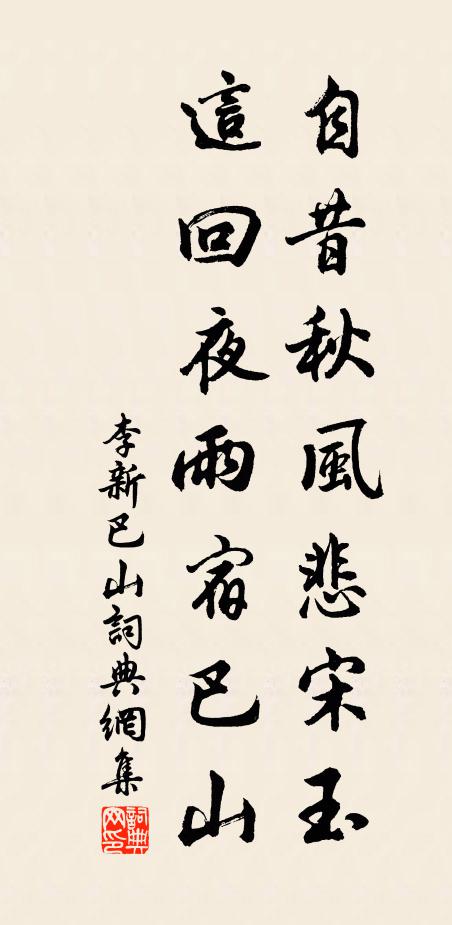 自昔秋風悲宋玉
這回夜雨宿巴山
李新巴山詞典網集
詞典網印